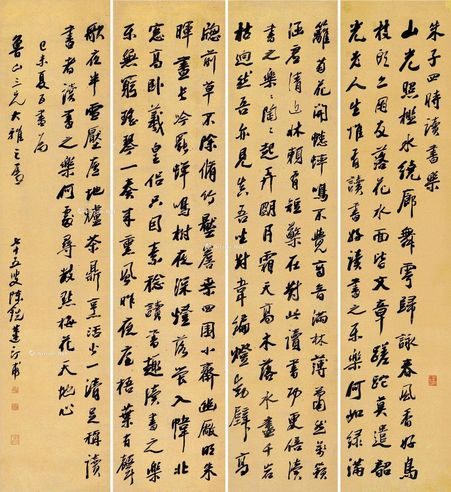 朱子四時讀書樂
山光照檻水繞廊舞雩歸詠春風香好鳥
枝頭亦朋友落花水面皆文章蹉跎莫遣韶
光老人生惟有讀書好讀書之樂樂何如綠滿
籬菊花開蟋蟀鳴不覺商音滿林薄蕭然萬籟
涵虛清近牀賴有短檠在對此讀書功更倍讀
書之樂樂陶陶起弄明月霜天高木落水盡千岩
枯迥然吾亦見真吾坐對韋編燈動壁高
窗前草不除脩竹壓簷桑四圍小齋幽敞明朱
暉晝長吟罷蟬鳴樹夜深燈落螢入幃北
窗高臥羲皇侶只因素稔讀書趣讀書之樂
樂無窮瑤琴一奏來熏風昨夜庭梧葉有聲
歌夜半雪壓廬地爐茶鼎烹活火一清足稱讀
書者讀書之樂何處尋數點梅花天地心
己未夏五書為
魯山三兄大雅之屬
七十五叟陳銳蓮汀甫